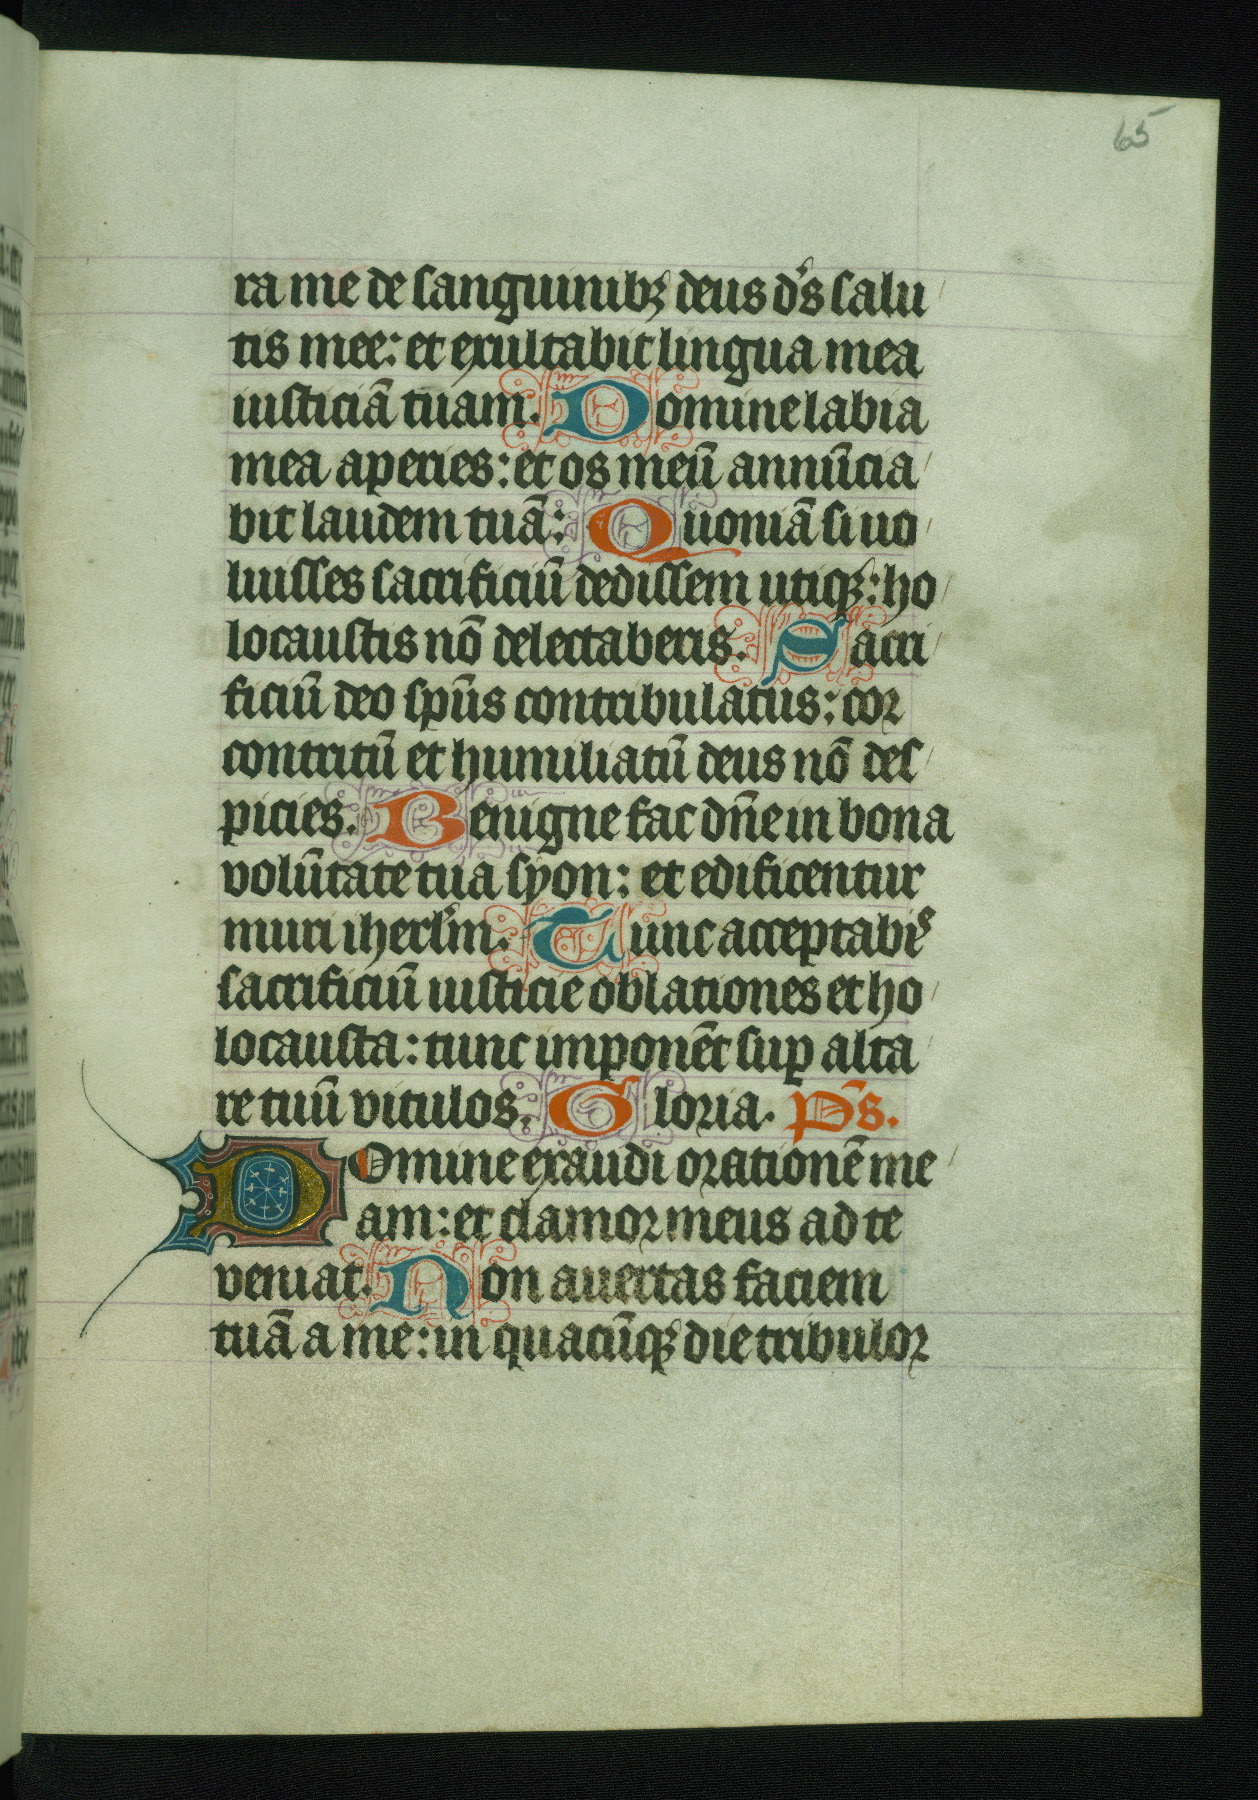 65
ra me de sanguinibꝫ deus dˢs salu
tis mee: et exultabit lingua mea
iusticiā tuam. Domine labia
mea aperies: et os meū annūcia
bit laudem tuā: Quoniā si uo
luisses sacrificiū dedissem utiqꝫ: ho
locaustis nō delectaberis. Sacri
ficiū deo spūs contribulatus: cor
contritū et humiliatū deus nō des
picies. Benigne fac dn̄e in bona
volūtate tua syon: et edificentur
muri iherl̄m. Tunc acceptabiˢ
sacrificiū iusticie oblationes et ho
locausta: tunc imponēt suꝑ alta
re tuū vitulos. Gloria. P̄s.
Domine exaudi orationē me
am: et clamor meus ad te
veniat. Non auertas faciem
tuā a me: in quacūqꝫ die tribulor